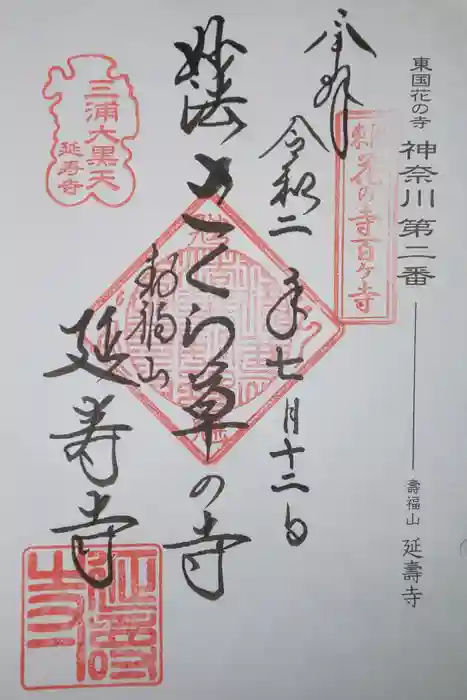 東国花の寺 神奈川第二番 壽福山 延壽寺
東国花の寺百ヶ寺
奉拝 令和二年七月十二日
妙法 さくら草の寺
寿福山
延寿寺
三浦大黒天
延寿寺